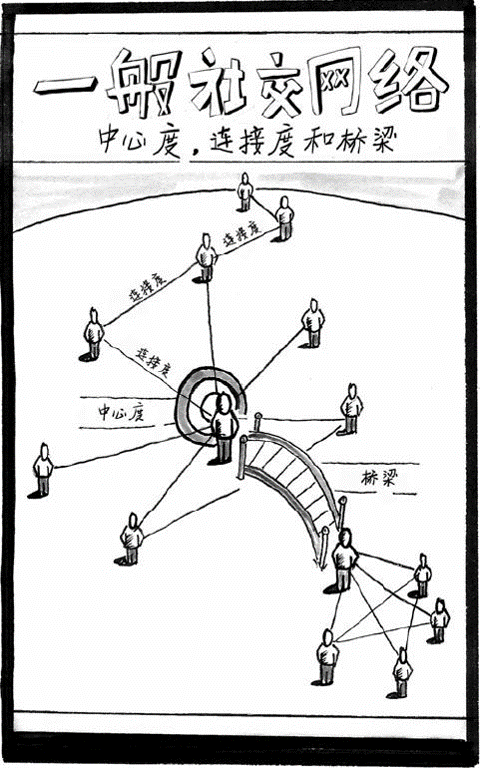 一般社交网络
中心度，连接度和桥梁
连接度
连接度
连接度
中心度
桥梁